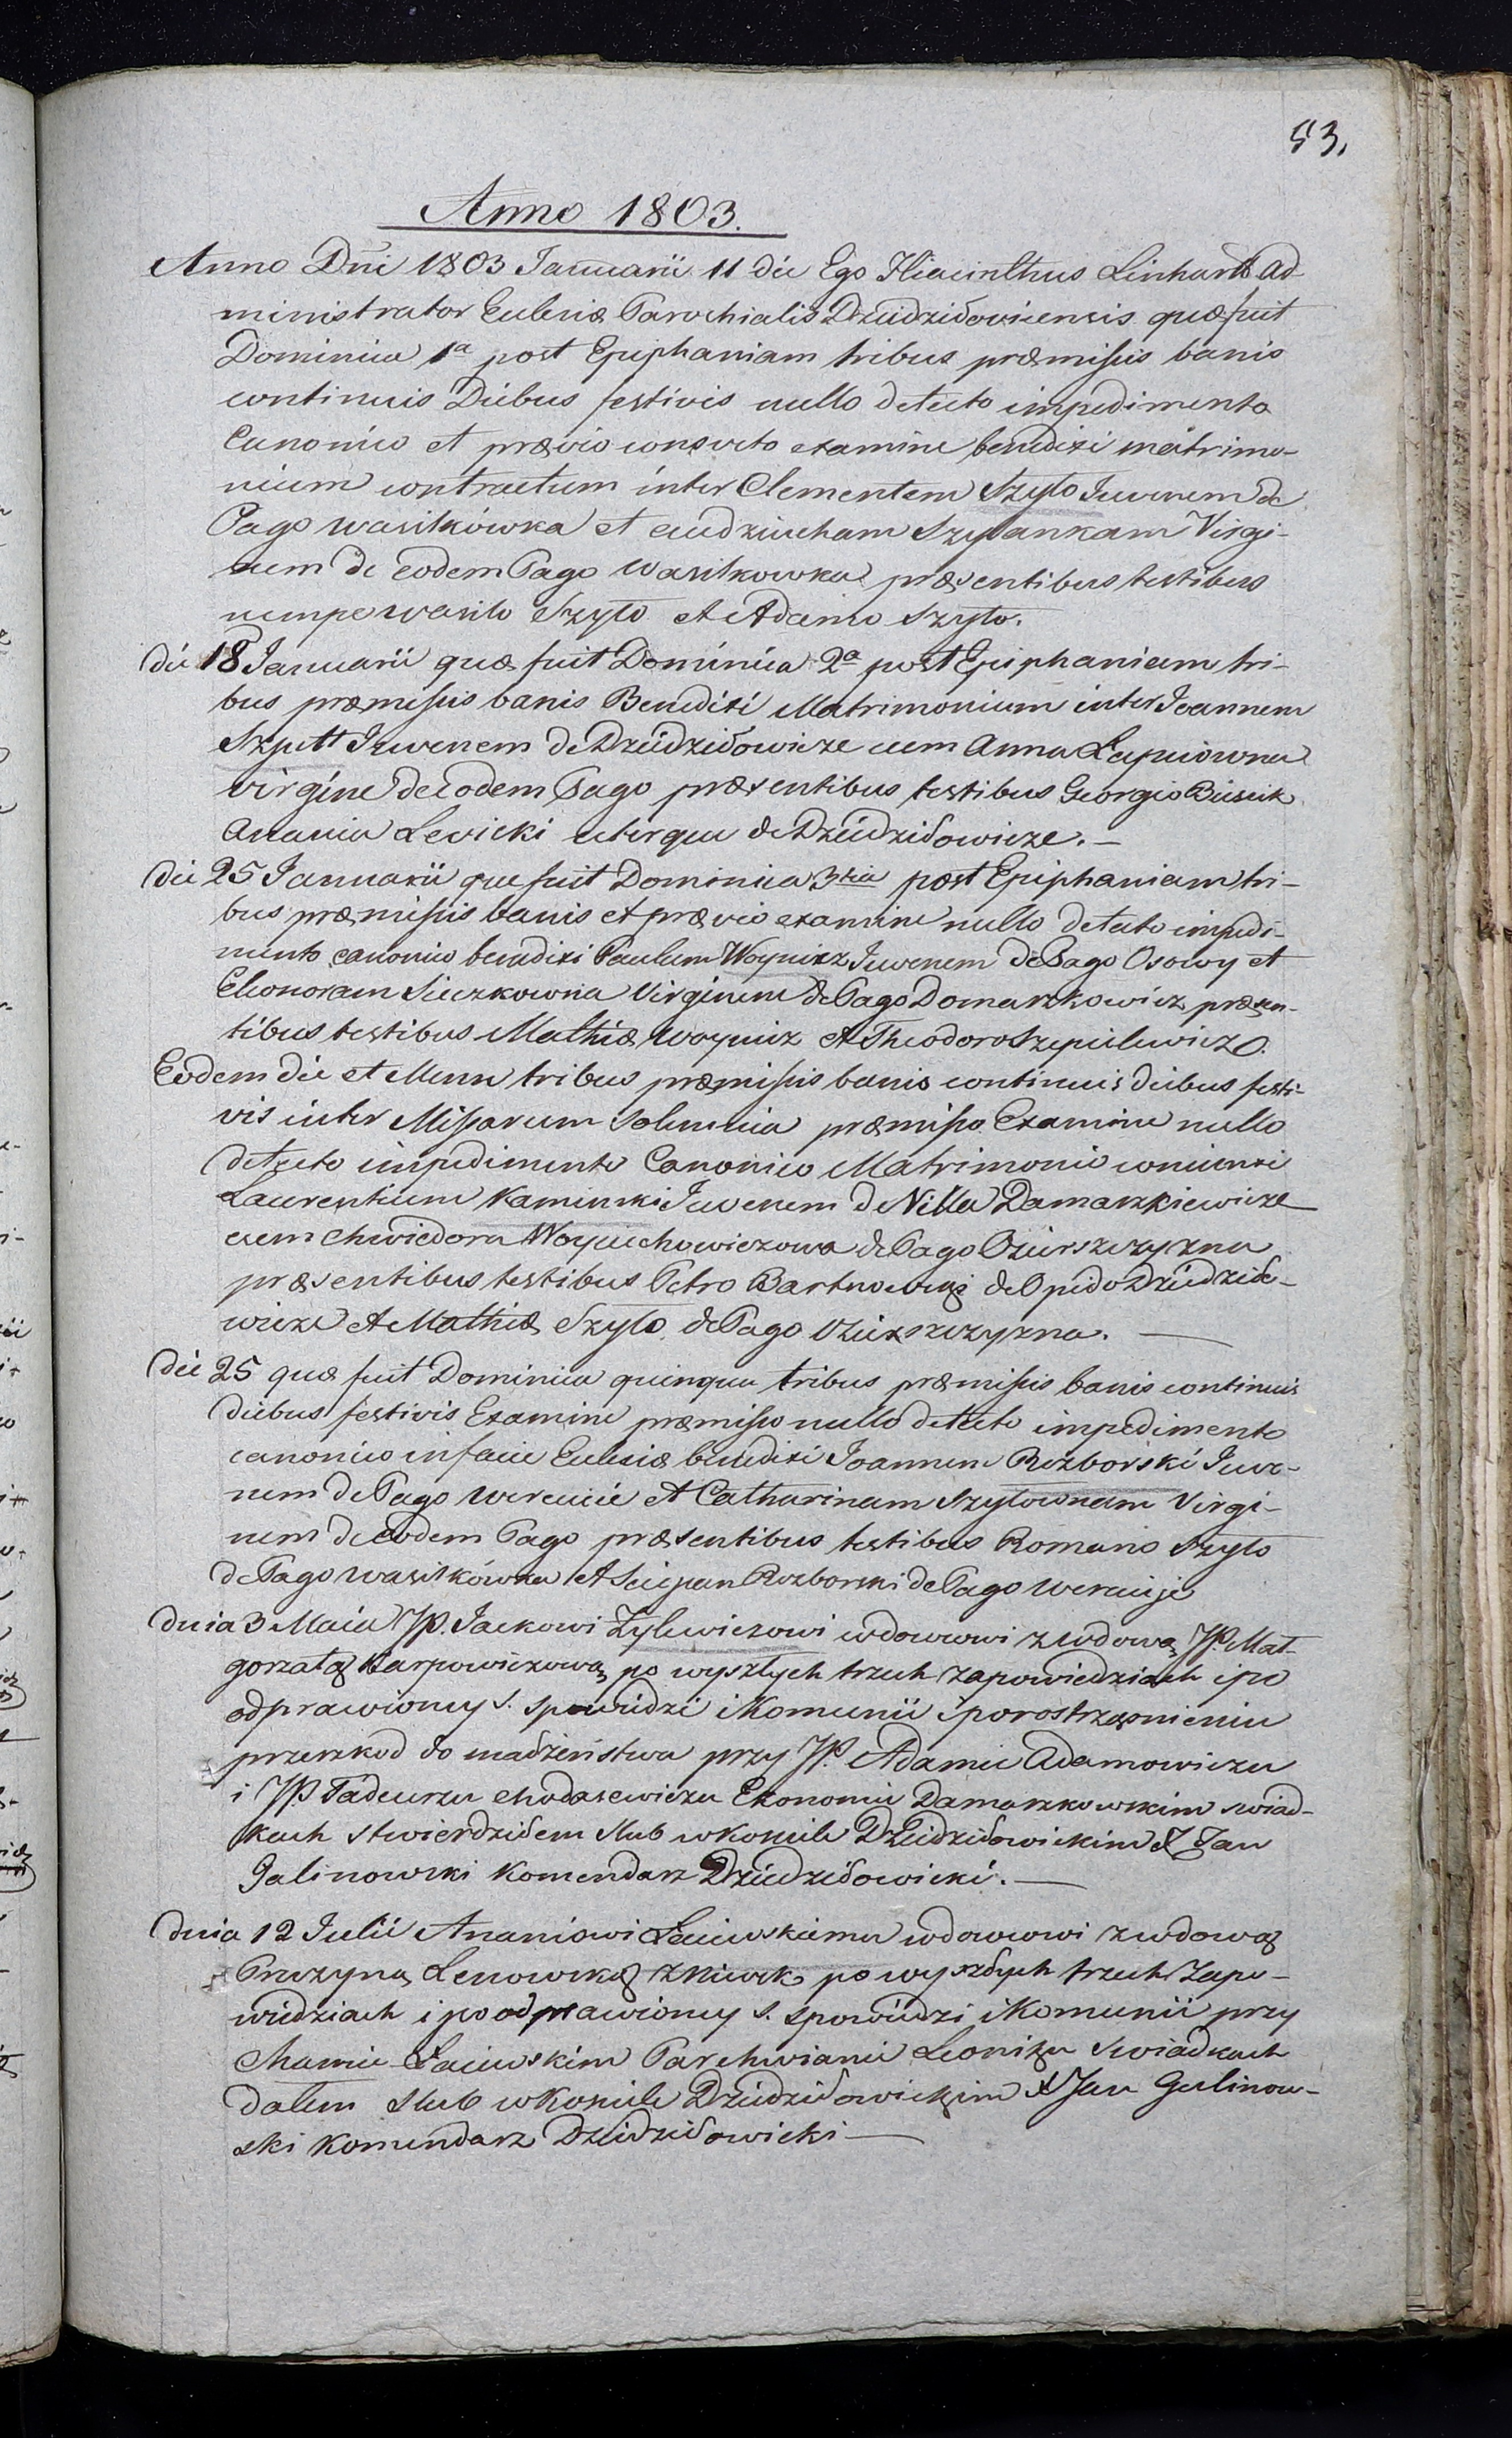 53,
Anno 1803.
Anno Dni 1803 Januarii 11 die Ego Hiacinthus Linhart Ad-
ministrator Eclesiæ Parochialis Dziedziłovicensis quæ fuit
Dominica 1a post Epiphaniam tribus præmissis banis
continuis Diebus festivis nullo detecto impedimento
Canonico et prævio consveto examine benedixi matrimo-
nium contractum inter Clementem Szyło Juvenem de
Pago Wasilkówka et eudziucham Szyłankam Virgi-
nem de eodem Pago Wasilkowka præsentibus testibus
nempe Wasilo Szyło et Adamo Szyło.
die 18 Januarii quæ fuit Dominica 2a post Epiphaniam tri-
bus præmissis banis Benedixi Matrimonium inter Joannem
Szpett Juvenem de Dziedziłowicze cum Anna Łapciowna
virgine de eodem Pago præsentibus testibus Georgio Busiek
Anania Levicki uterque de Dziedziłowicze. —
die 25 Januarii que fuit Dominica 3tia post Epiphaniam tri-
bus præmissis banis et prævio examine nullo detecto impedi-
mento canonico benedixi Paulum Woynicz Juvenem de Pago Osowy et
Eleonoram Sieczkowna Virginem de Pago Domaszkowicz præsen-
tibus testibus Mathia Woynicz et Theodoro Szepielewicz
Eodem die et Mense tribus præmissis banis continuis diebus festi-
vis inter Missarum solemnia præmisso Examine nullo
detecto impedimento Canonico Matrimonio coniunxi
Laurentium Kaminski Juvenem de Villa Damaszkiewicze
cum Chwiedora Woyciechowiczowa de Pago Oziurszczyzna
præsentibus testibus Petro Bartnowski de Opido Dziedziło-
wicze et Mathia Szyło de Pago Oziurszczyzna. —
die 25 quæ fuit Dominica quinqua tribus præmissis banis continuis
diebus festivis Examine præmisso nullo detecto impedimento
canonico in facie Eclesiæ benedixi Joannem Rozborski Juve-
nem de Pago Wereicie et Catharinam Szyłownam Virgi-
nem de eodem Pago præsentibus testibus Romano Szyło
de Pago Wasilkówka et Sciepan Rozborski de Pago
dnia 3 Maia JP. Jackowi Zylewiczowi wdowcowi z wdową JP. Mał-
gorzatą Karpowiczową po wyszłych trzech zapowiedziach i po
odprawioney s. spowiedzi i Komunii i porostrząsnieniu
przeszkod do małżeństwa przy JP. Adamie Adamowiczu
i JP. Tadeuszu Chodasewiczu Ekonomie Damaszkowskim swiad-
kach stwierdziłem slub w kosciele Dziedziłowickim X Jan
Galinowski Komendarz Dziedziłowicki. —
dnia 12 Julii Ananiowi Łaiewskiemu wdowcowi z wdową
Pruzyną Lenowską z po wyszłych trzech Zapo-
wiedziach i po odprawioney s. spowiedzi i Komunii przy
Chamie Łaiewskim Parchwianie Leonizu Swiadkach
dałem slub w Kosciele Dziedziłowickim X Jan Galinow-
ski Komendarz Dziedziłowicki —